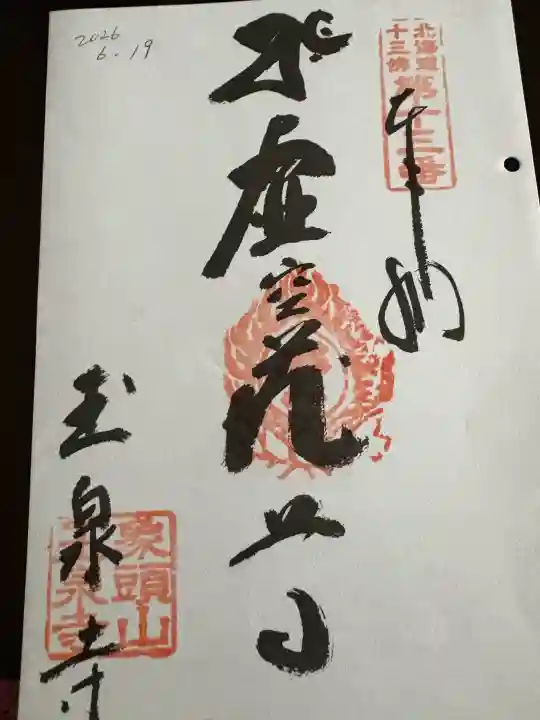 北海道
十三佛
第十三番
奉拝
虚空蔵
玉泉寺
象頭山
玉泉寺
2026
6.19